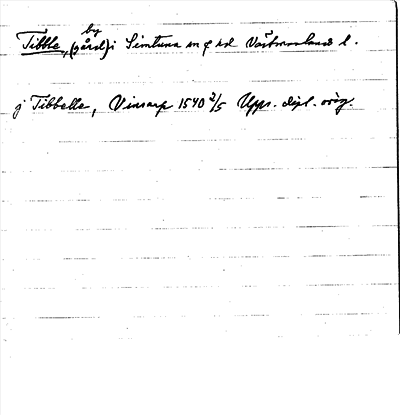 by
Tibble, (gård) i Simtuna sn o hd Västmanlands l.
j Tibbelle, Vinsarp 1540 2/5 Upps. dipl. orig.